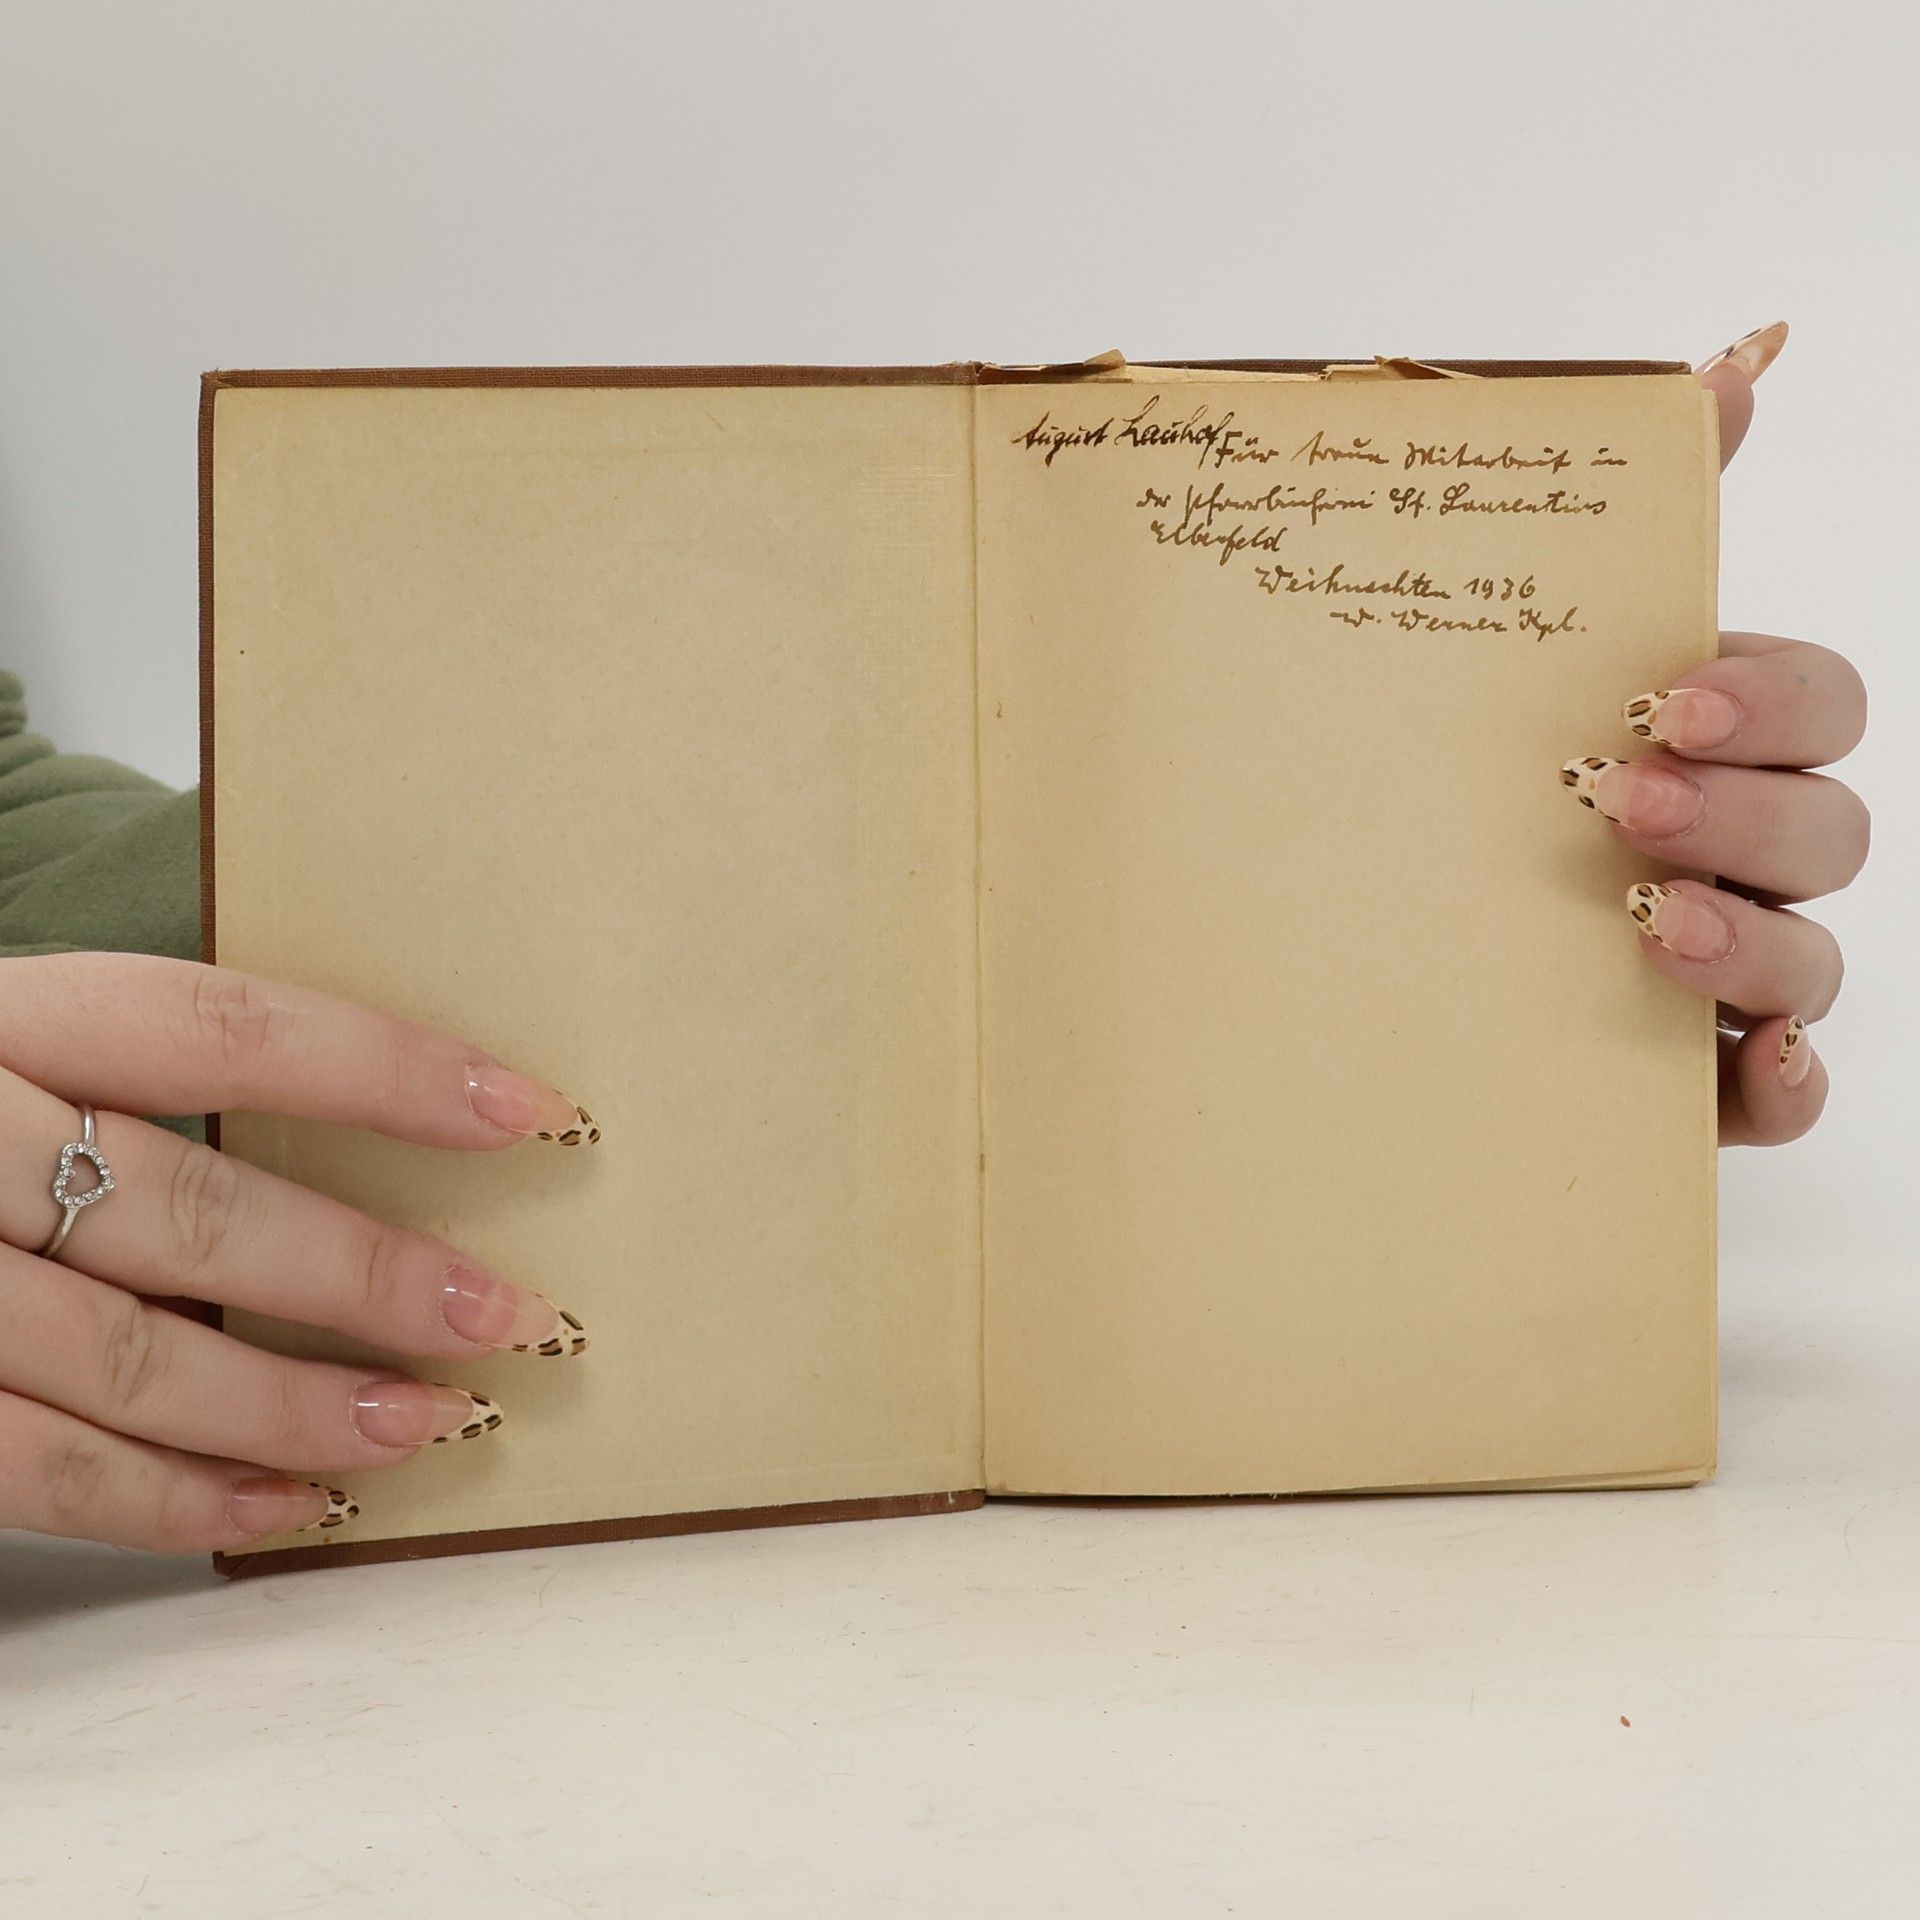 August Lauhof
Für treue Mitarbeit in
der Pfarrbücherei St. Laurentius
Elberfeld
Weihnachten 1936
W. Werner Kpl.